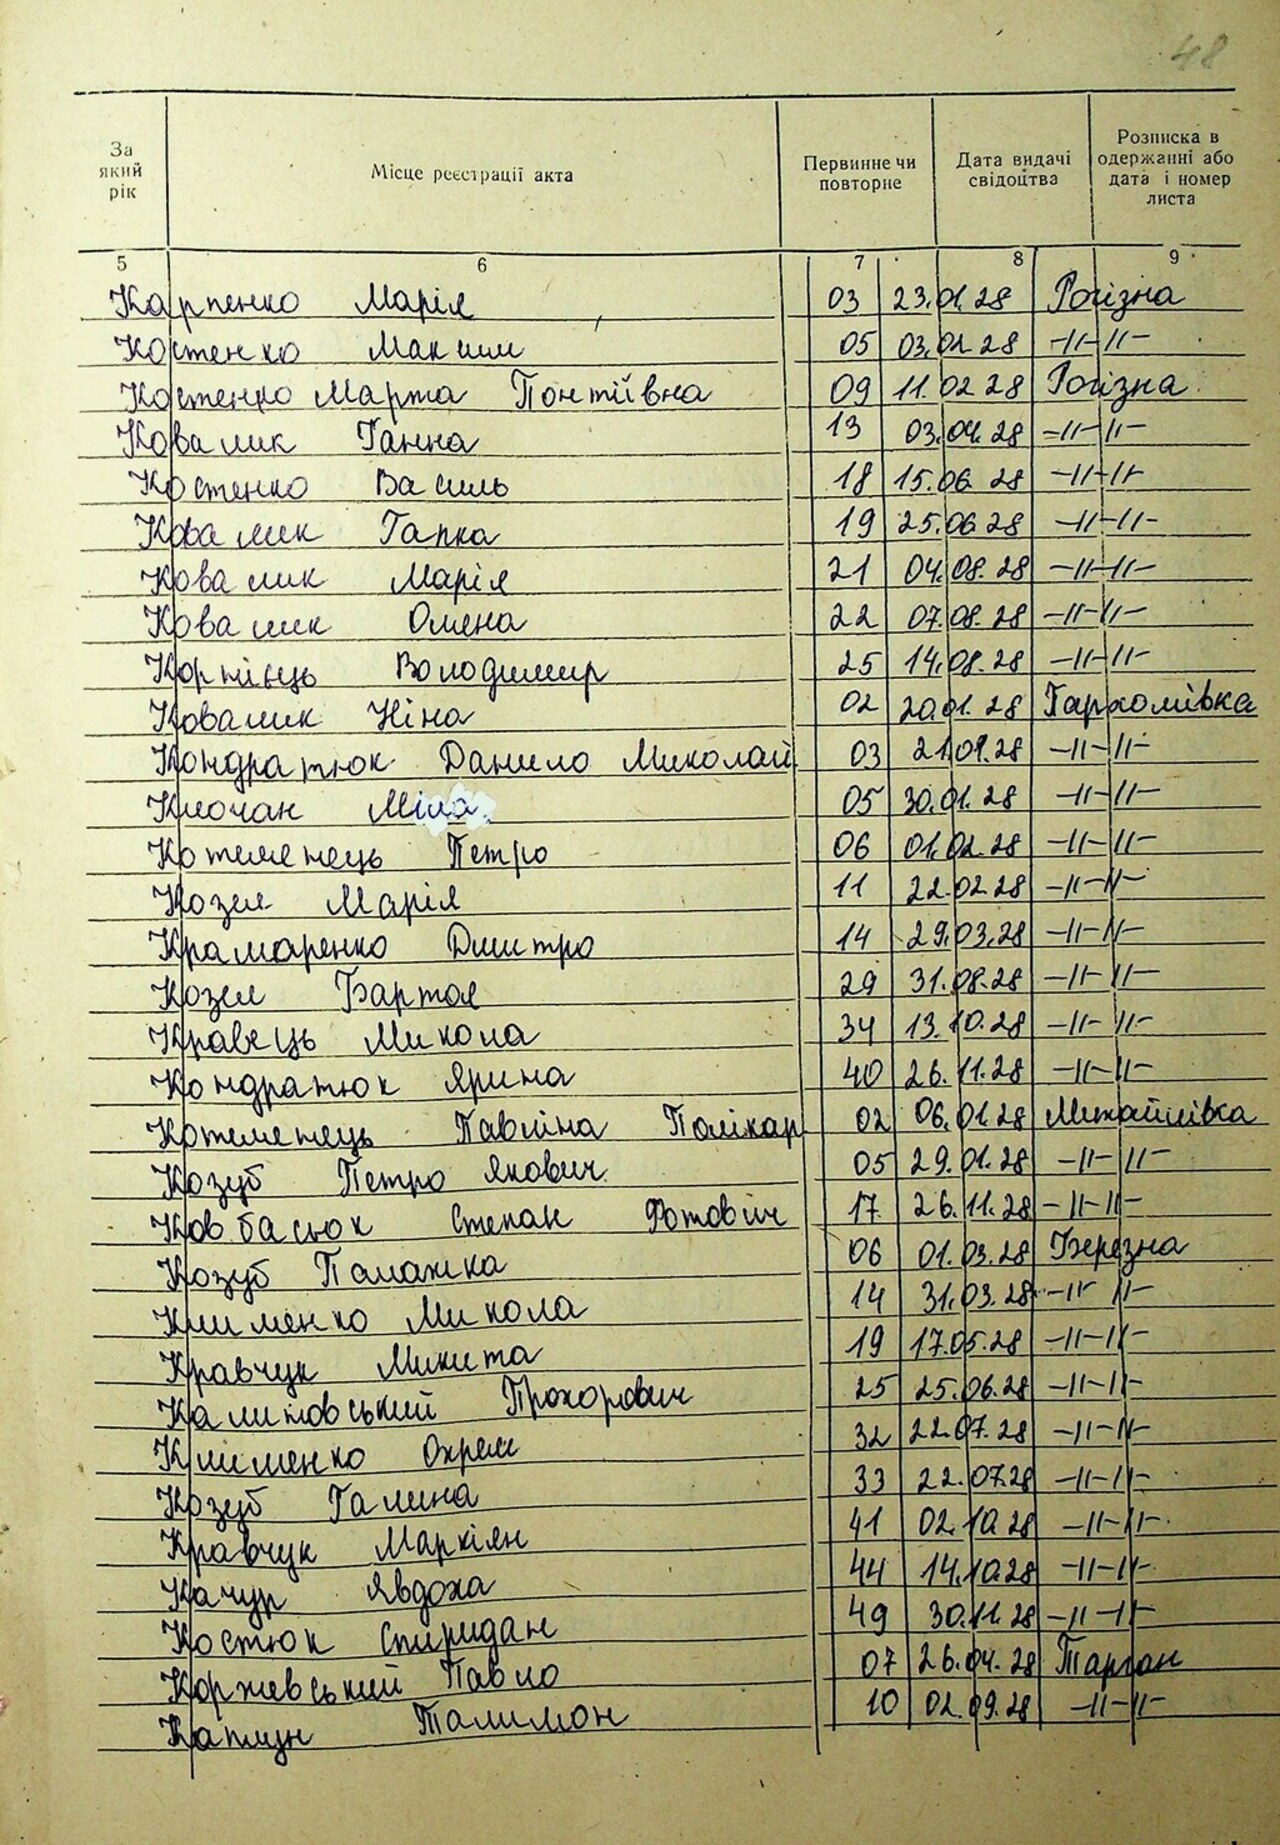 48
За який рік Місце реєстрації акта Первинне чи повторне Дата видачі свідоцтва Розписка в одержанні або дата і номер листа
5 6 7 8 9
Карпенко Марія 03 23.01.28 Рогізна
Костенко Максим 05 03.02.28 -//-//-
Костенко Марта Понтіївна 09 11.02 28 Рогізна
Ковалик Ганна 13 03.04.28 -//-//-
Костенко Василь 18 15.06 28 -//-//-
Ковалик Гапка 19 25.06 28 -//-//-
Ковалик Марія 21 04.08.28 -//-//-
Ковалик Олена 22 07.08.28 -//-//-
Корнієць Володимир 25 14.08.28 -//-//-
Ковалик Ніна 02 20.01.28 Пархомівка
Кондратюк Данило Миколай 03 21.01.28 -//-//-
Клочан 05 30.01.28 -//-//-
Котеленець Петро 06 01.02.28 -//-//-
Козел Марія 11 22.02.28 -//-//-
Крамаренко Дмитро 14 29.03.28 -//-//-
Козел Бартол 29 31.08.28 -//-//-
Кравець Микола 34 13.10.28 -//-//-
Кондратюк Ярина 40 26.11.28 -//-//-
Котеленець Павліна Полікар 02 06.01.28 Михайлівка
Козуб Петро Якович 05 29.01.28 -//-//-
Ковбасюк Степан Фотович 17 26.11.28 -//-//-
Козуб Палажка 06 01.03.28 Березна
Клименко Микола 14 31.03.28 -//-//-
Кравчук Микита 19 17.05.28 -//-//-
Калиновський Прохорович 25 25.06.28 -//-//-
Клименко Охрем 32 22.07.28 -//-//-
Козуб Галина 33 22.07.28 -//-//-
Кравчук Маркіян 41 02.10.28 -//-//-
Качур Явдоха 44 14.10.28 -//-//-
Костюк Спиридан 49 30.11.28 -//-//-
Коржевський Павло 07 26.04.28 Тарган
Каплун Талимон 10 02.09.28 -//-//-